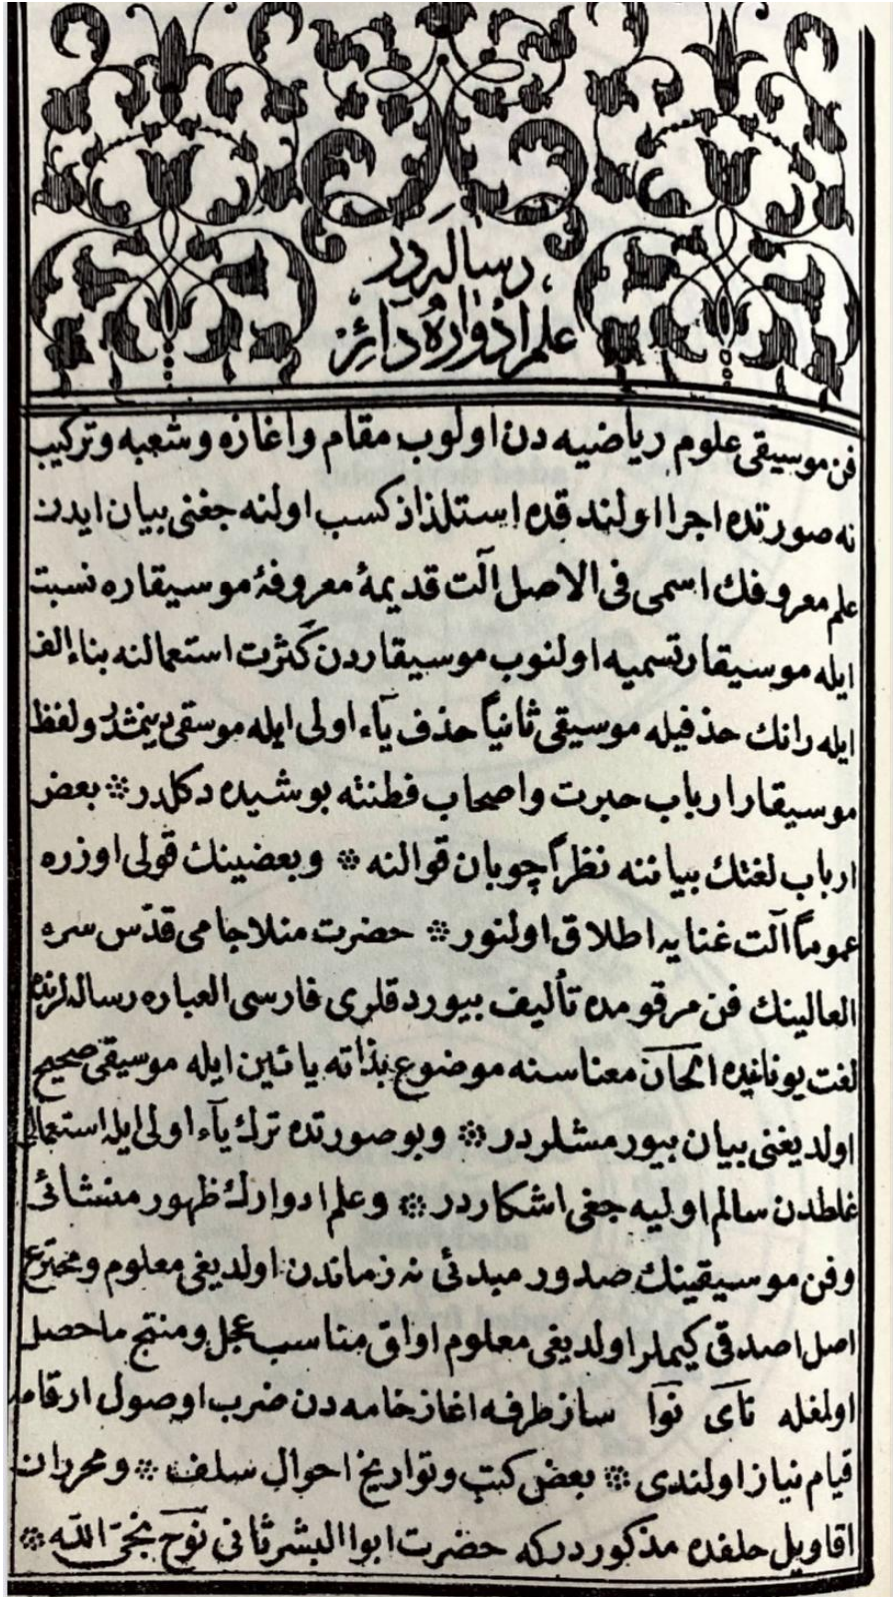 رساله در
علم ادواره دائر
فن موسیقی علوم ریاضیه دن اولوب مقام واغازه وشعبه وترکیب
نه صورتده اجرا اولندقده استلذاذ کسب اولنه جغنی بیان ایدن
علم معروفك اسمی فی الاصل آلت قدیمۀ معروفۀ موسیقاره نسبت
ایله موسیقار تسمیه اولنوب موسیقاردن کثرت استعمالنه بناء الف
ایله رانك حذفیله موسیقی ثانیاً حذف یآء اولی ایله موسقی دینمشدر ولفظ
موسیقار ارباب حبرت واصحاب فطنته پوشیده دکلدر ❊ بعض
ارباب لغتك بیاننه نظراً چوبان قوالنه ❊ وبعضینك قولی اوزره
عموماً آلت غنایه اطلاق اولنور ❊ حضرت منلا جامی قدّس سره
العالینك فن مرقومده تألیف بیوردقلری فارسی العباره رساله لرنده
لغت یونانیده الحان معناسنه موضوع بذاته یائین ایله موسیقی صحیح
اولدیغنی بیان بیورمشلردر ❊ وبو صورتده ترك یآء اولی ایله استعمالی
غلطدن سالم اولیه جغی اشکاردر ❊ وعلم ادوارك ظهور منشائی
وفن موسیقینك صدور مبدئی نه زماندن اولدیغی معلوم ومخترع
اصل اصدقی کیملر اولدیغی معلوم اواق مناسب عجل ومنتج ماحصل
اولمغله نای نوا ساز طرفه اغاز خامه دن ضرب اوصول ارقامه
قیام نیاز اولندی ❊ بعض کتب وتواریخ احوال سلف ❊ ومحرران
اقاویل حلفده مذکوردرکه حضرت ابوا البشر ثانی نوح نجیّ الله ❊